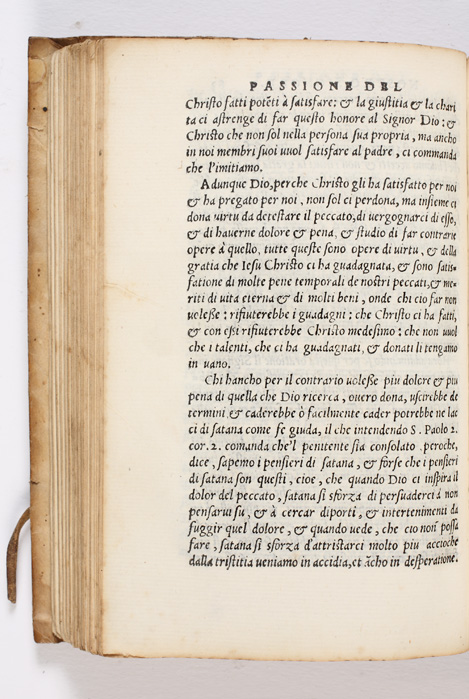 PASSIONE DEL
Christo fatti potẽti à satisfare: & la giustitia & la chari
ta ci astrenge di far questo honore al Signor Dio: &
Christo che non sol nella persona sua propria, ma ancho
in noi membri suoi vuol satisfare al padre, ci commanda
che l'imitiamo.
Adunque Dio, perche Christo gli ha satisfatto per noi
& ha pregato per noi, non sol ci perdona, ma insieme ci
dona uirtu da detestare il peccato, di uergognarci di esso,
& di hauerne dolore & pena, & studio di far contrarie
opere à quello, tutte queste sono opere di uirtu, & della
gratia che Iesu Christo ci ha guadagnata, & sono satis-
fatione di molte pene temporali de nostri peccati, & me-
riti di uita eterna & di molti beni, onde chi cio far non
uolesse: rifiuterebbe i guadagni: che Christo ci ha fatti,
& con eßi rifiuterebbe Christo medesimo: che non uuol
che i talenti, che ci ha guadagnati, & donati li tengamo
in uano.
Chi hancho per il contrario uolesse piu dolore & piu
pena di quella che Dio ricerca, ouero dona, uscirebbe de
termini & caderebbe ò facilmente cader potrebbe ne lac
ci di satana come se giuda, il che intendendo S. Paolo 2.
cor. 2. comanda che'l penitente sia consolato peroche,
dice, sapemo i pensieri di satana, & forse che i pensieri
di satana son questi, cioe, che quando Dio ci inspira il
dolor del peccato, satana si sforza di persuaderci à non
pensarui su, & à cercar diporti, & intertenimenti da
fuggir quel dolore, & quando uede, che cio non possa
fare, satana si sforza d'attristarci molto piu accioche
dalla tristitia ueniamo in accidia, et ãcho in desperatione.